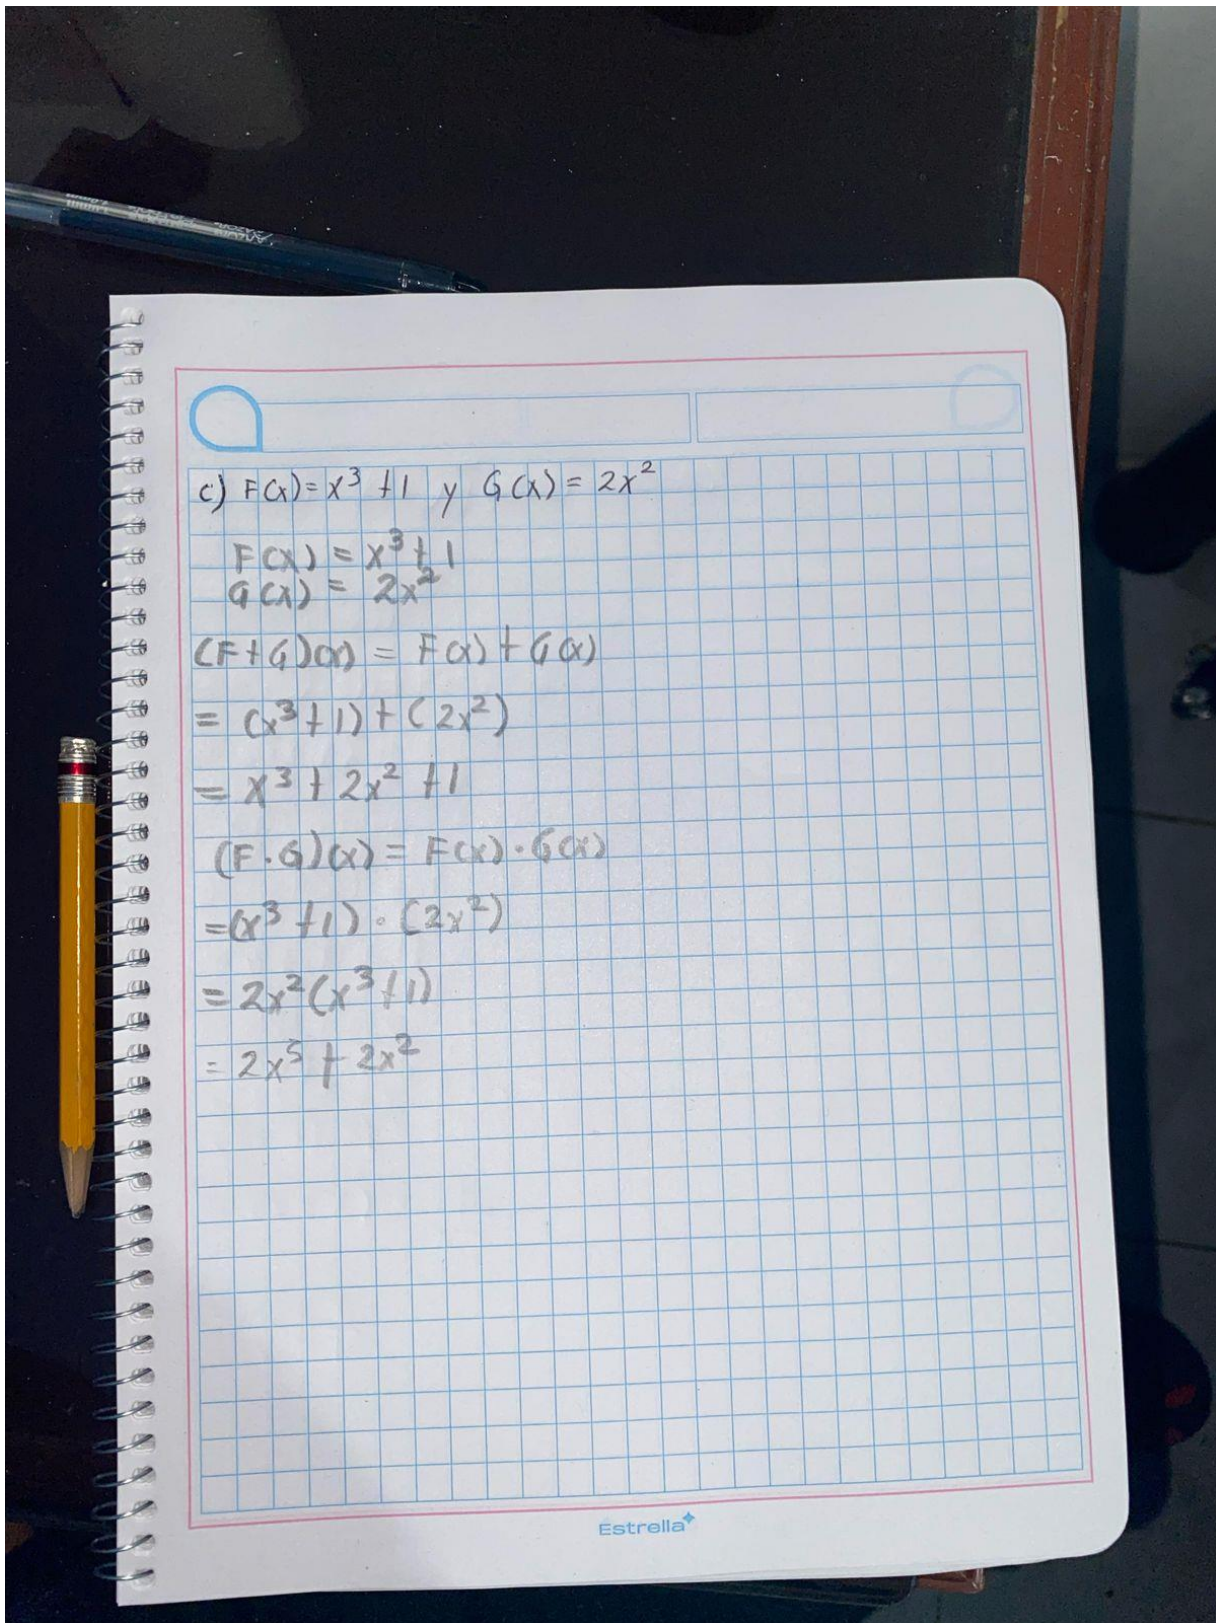 c) F(x) = x³ + 1 y G(x) = 2x²
F(x) = x³ + 1
G(x) = 2x²
(F+G)(x) = F(x) + G(x)
= (x³ + 1) + (2x²)
= x³ + 2x² + 1
(F·G)(x) = F(x) · G(x)
= (x³ + 1) · (2x²)
= 2x²(x³ + 1)
= 2x⁵ + 2x²
Estrella